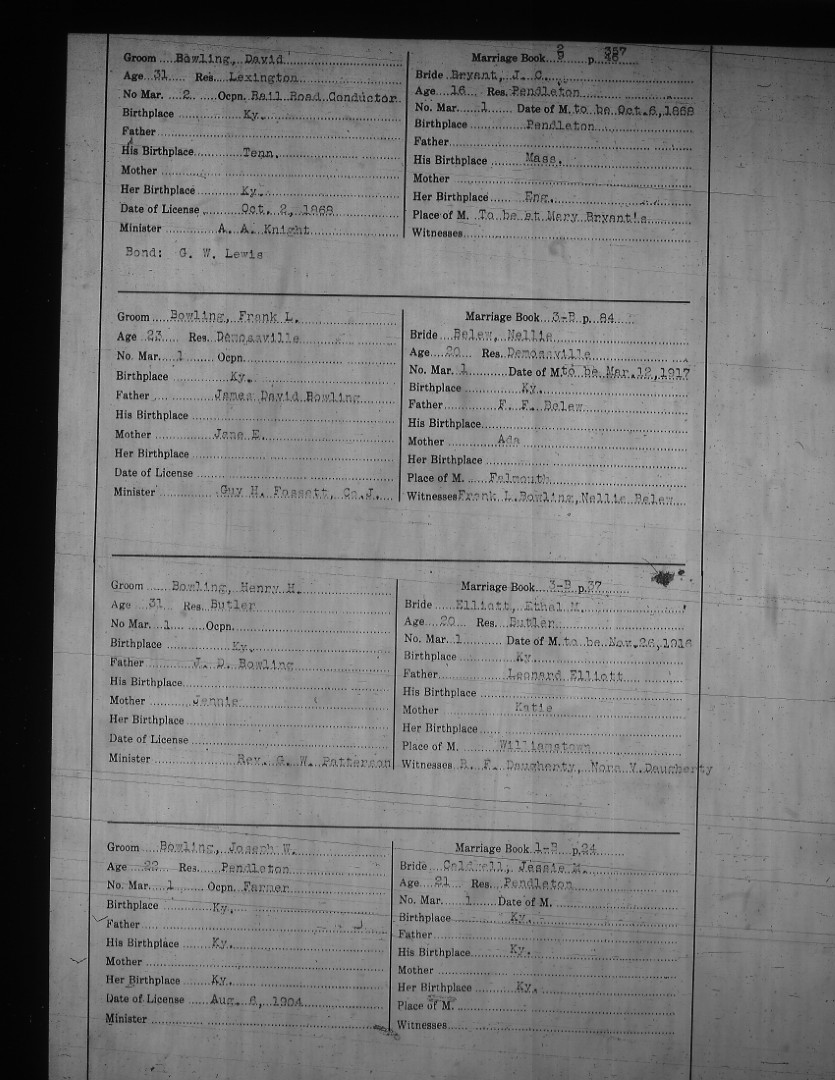 Groom Bowling, David
Age 31 Res. Lexington
No Mar. 2. Ocpn. Rail Road Conductor
Birthplace Ky.
Father
His Birthplace Tenn.
Mother
Her Birthplace Ky.
Date of License Oct. 2, 1868
Minister A. A. Knight
Bond: G. W. Lewis
Marriage Book p. 357
Bride Bryant, J. C.
Age 16 Res. Pendleton
No. Mar. 1 Date of M. to be Oct. 6, 1868
Birthplace Pendleton
Father
His Birthplace Mass.
Mother
Her Birthplace Eng.
Place of M. To be at Mary Bryant's
Witnesses
Groom Bowling, Frank L.
Age 23 Res. Demossville
No. Mar. 1 Ocpn.
Birthplace Ky.
Father James David Bowling
His Birthplace
Mother Jane E.
Her Birthplace
Date of License
Minister Guy H. Fossett, Co.J.
Marriage Book 3-B p. 84
Bride Belew, Nellie
Age 20 Res. Demossville
No. Mar. 1 Date of M. to be Mar. 12, 1917
Birthplace Ky.
Father F. F. Belew
His Birthplace
Mother Ada
Her Birthplace
Place of M. Falmouth
Witnesses Frank L. Bowling, Nellie Belew
Groom Bowling, Henry H.
Age 31 Res. Butler
No Mar. 1 Ocpn.
Birthplace Ky.
Father J. D. Bowling
His Birthplace
Mother Jennie
Her Birthplace
Date of License
Minister Rev. G. W. Patterson
Marriage Book 3-B p. 37
Bride Elliott, Ethel M.
Age 20 Res. Butler
No. Mar. 1 Date of M. to be Nov. 26, 1916
Birthplace Ky.
Father Leonard Elliott
His Birthplace
Mother Katie
Her Birthplace
Place of M. Williamstown
Witnesses R. F. Daugherty, Nora V. Daugherty
Groom Bowling, Joseph W.
Age 22 Res. Pendleton
No. Mar. 1 Ocpn. Farmer
Birthplace Ky.
Father J.
His Birthplace Ky.
Mother
Her Birthplace Ky.
Date of License Aug. 6, 1904
Minister
Marriage Book 1-B p. 24
Bride Caldwell, Jessie M.
Age 21 Res. Pendleton
No. Mar. 1 Date of M.
Birthplace Ky.
Father
His Birthplace Ky.
Mother
Her Birthplace Ky.
Place of M.
Witnesses